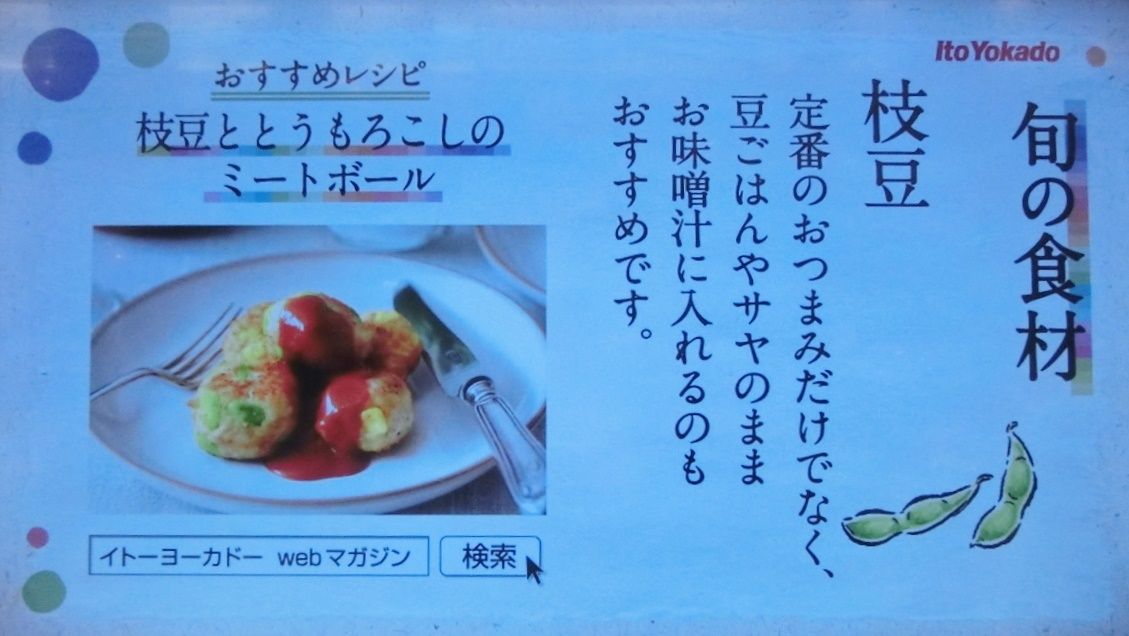 ItoYokado
旬の食材
枝豆
定番のおつまみだけでなく、
豆ごはんやサヤのまま
お味噌汁に入れるのも
おすすめです。
おすすめレシピ
枝豆ととうもろこしの
ミートボール
イトーヨーカドー webマガジン
検索